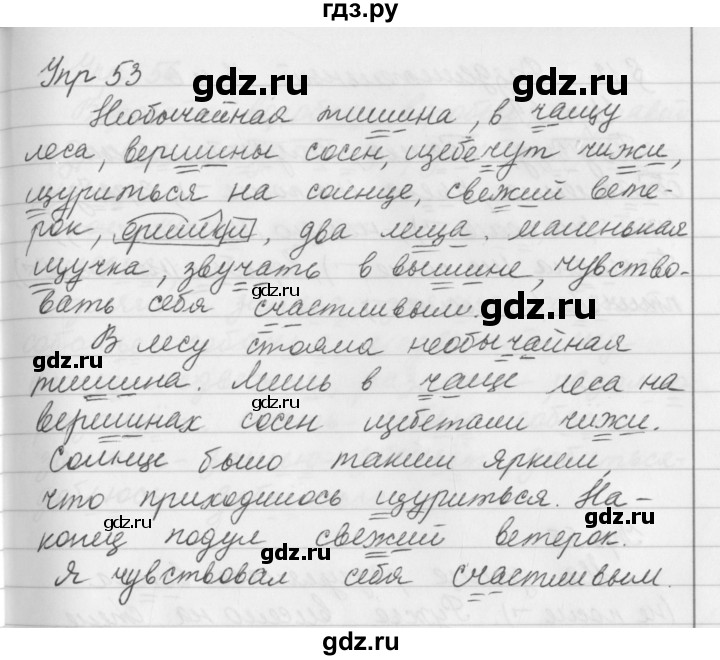 гдз.ру
Упр 53
gdz.ru
gdz.ru
Необычайная тишина, в чащу
леса, вершины сосен, щебечут чижи,
щуриться на солнце, свежий вете-
рок, ёршики, два леща, маленькая
щучка, звучать в вышине, чувство-
gdz.ru
вать себя счастливым.
gdz.ru
В лесу стояла необычайная
тишина. Лишь в чаще леса на
вершинах сосен щебетали чижи.
Солнце было таким ярким,
что приходилось щуриться. На-
gdz.ru
конец подул свежий ветерок.
gdz.ru
Я чувствовал себя счастливым.
gdz.ru